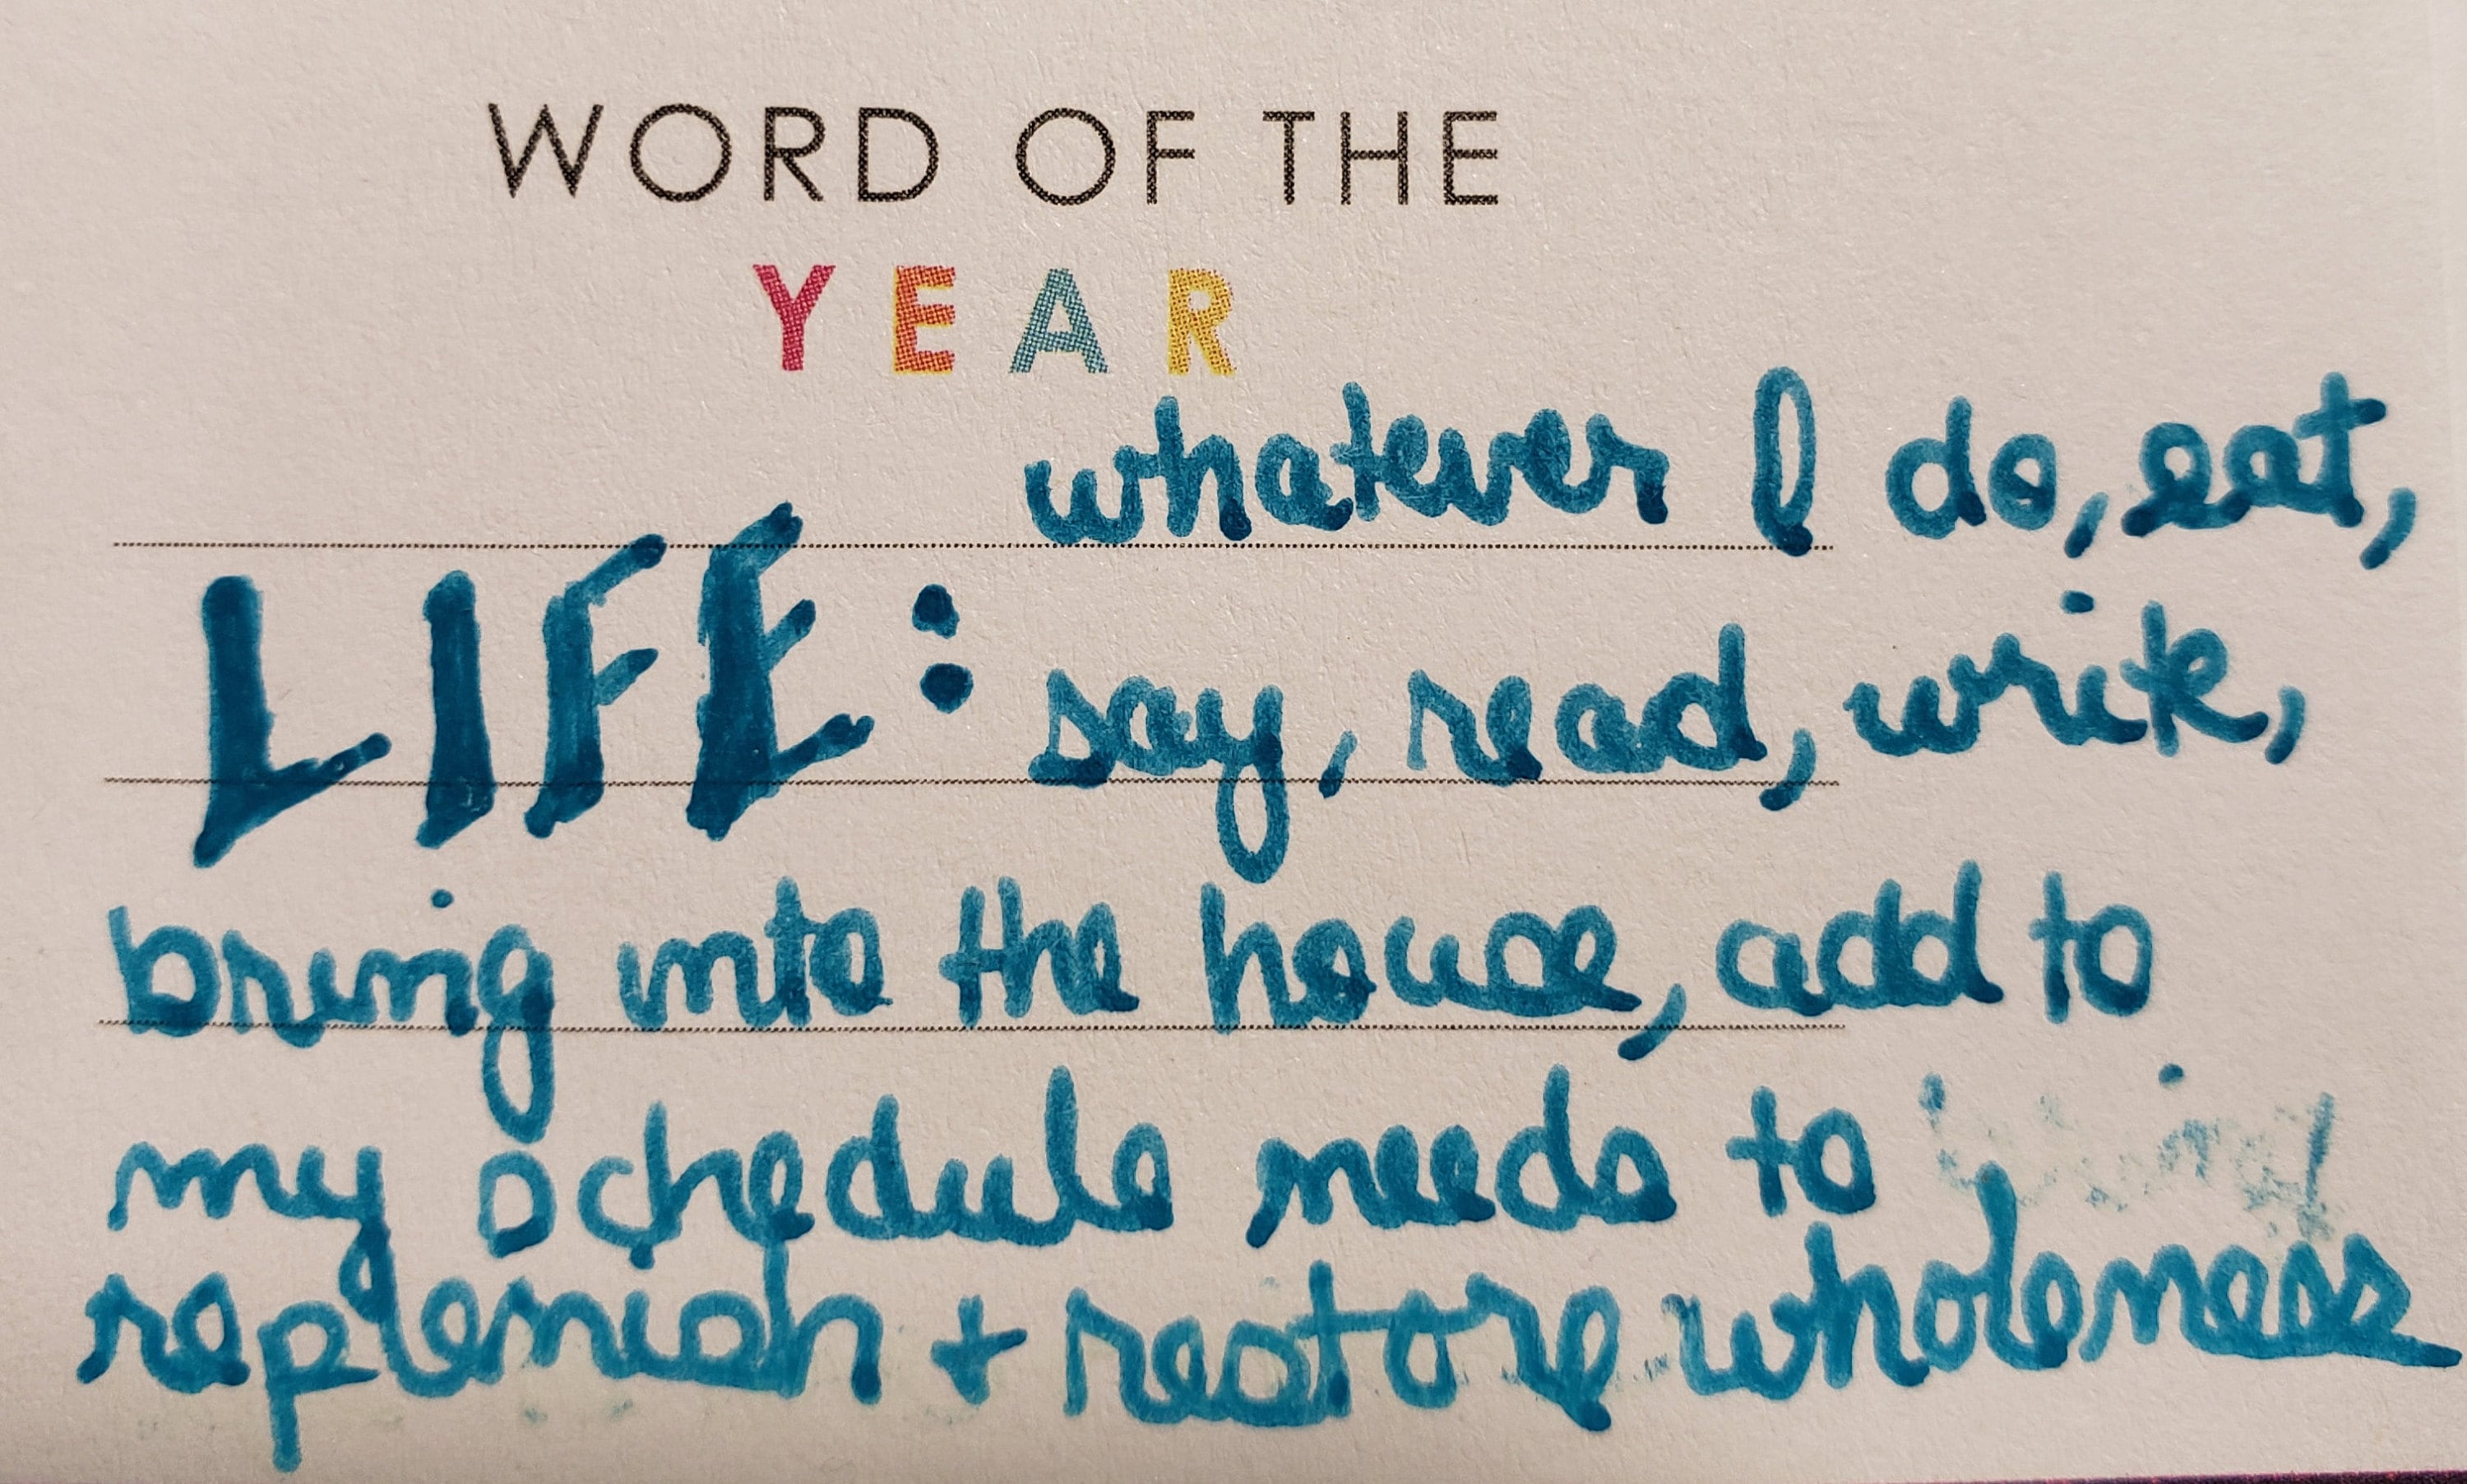 WORD OF THE
YEAR
whatever I do, eat,
LIFE: say, read, write,
bring into the house, add to
my schedule needs to
replenish + restore wholeness